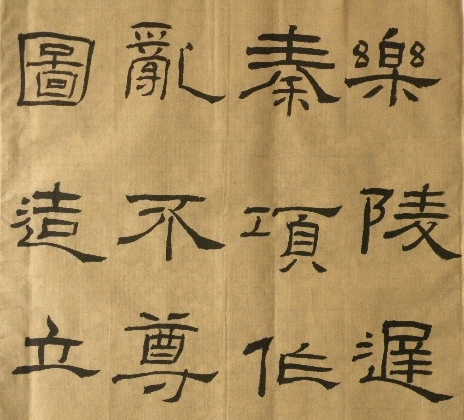 樂陵遲
秦項作
亂不尊
圖造立